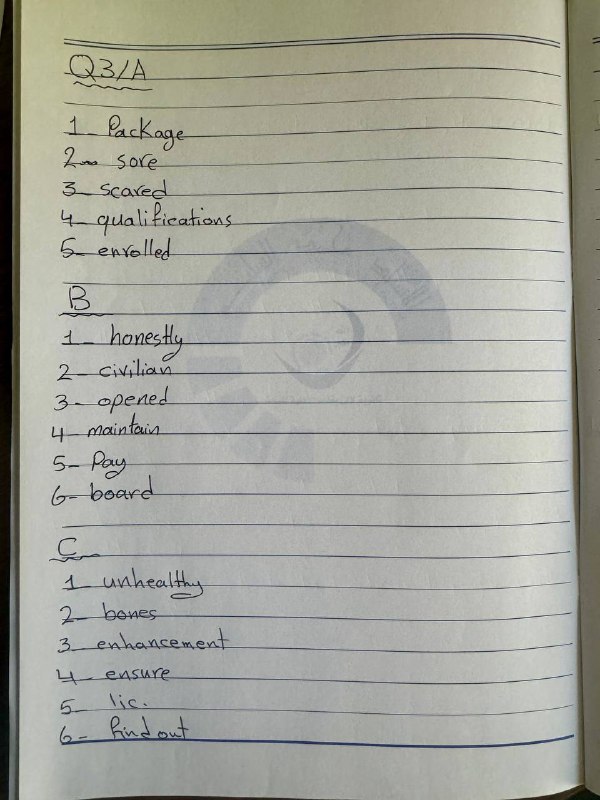 Q3/A
1- Package
2- sore
3- scared
4- qualifications
5- enrolled
B
1- honestly
2- civilian
3- opened
4- maintain
5- Pay
6- board
C
1- unhealthy
2- bones
3- enhancement
4- ensure
5- lic.
6- find out